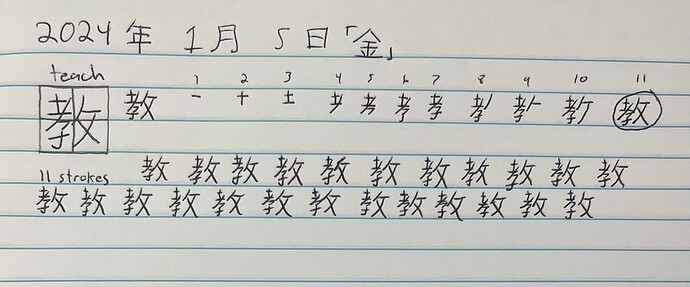 2024年 1月 5日「金」
teach 1 2 3 4 5 6 7 8 9 10 11
教 教 一 十 土 耂 孝 教
11 strokes 教 教 教 教 教 教 教 教 教 教 教
教 教 教 教 教 教 教 教 教 教 教 教 教